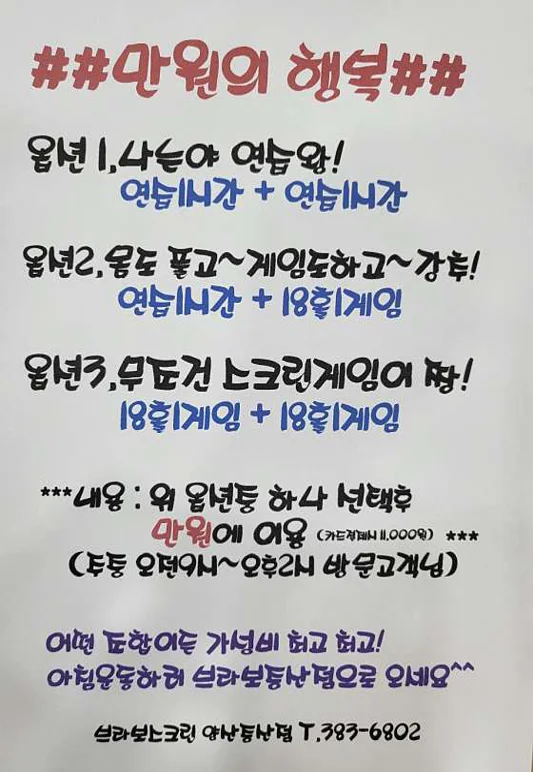 ##만원의 행복##
옵션 1,나는야 연습왕!
연습1시간 + 연습1시간
옵션2,몸도 풀고~게임도하고~강추!
연습1시간 + 18홀1게임
옵션3,무조건 스크린게임이 짱!
18홀1게임 + 18홀1게임
***내용 : 위 옵션중 하나 선택후
만원에 이용 (카드결제시 11.000원) ***
(주중 오전9시~오후2시 방문고객님)
어떤 조합이든 가성비 최고 최고!
아침운동하러 브라보증산점으로 오세요^^
브라보스크린 양산증산점 T.383-6802